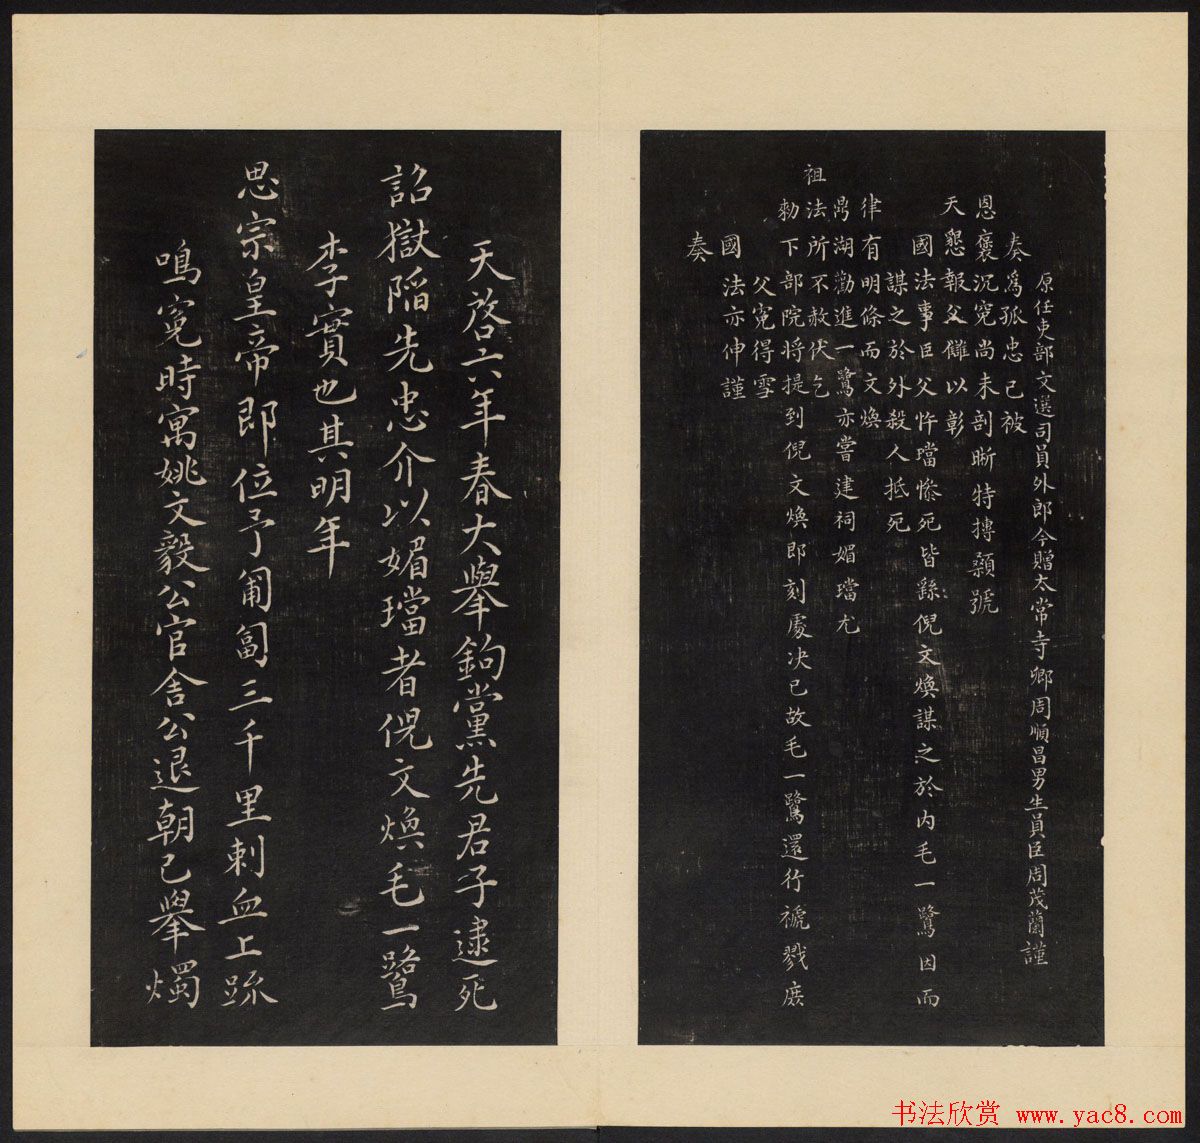 原任吏部文選司員外郎今贈太常寺卿周順昌男生員臣周茂蘭謹
奏為孤忠已被
恩褒沉冤尚未剖晰特摶顙號
天懇報父讎以彰
國法事臣父忤璫慘死皆繇倪文煥謀之於內毛一鷺因而
謀之於外殺人抵死
律有明條而文煥
鼎湖勸進一鷺亦嘗建祠媚璫尤
祖法所不赦伏乞
勅下部院將提到倪文煥即刻處決已故毛一鷺還行褫戮庶
父冤得雪
國法亦伸謹
奏
天啓六年春大舉鉤黨先君子逮死
詔獄陷先忠介以媚璫者倪文煥毛一鷺
李實也其明年
思宗皇帝即位予匍匐三千里刺血上疏
鳴冤時寓姚文毅公官舍公退朝已舉燭
书法欣赏 www.yac8.com